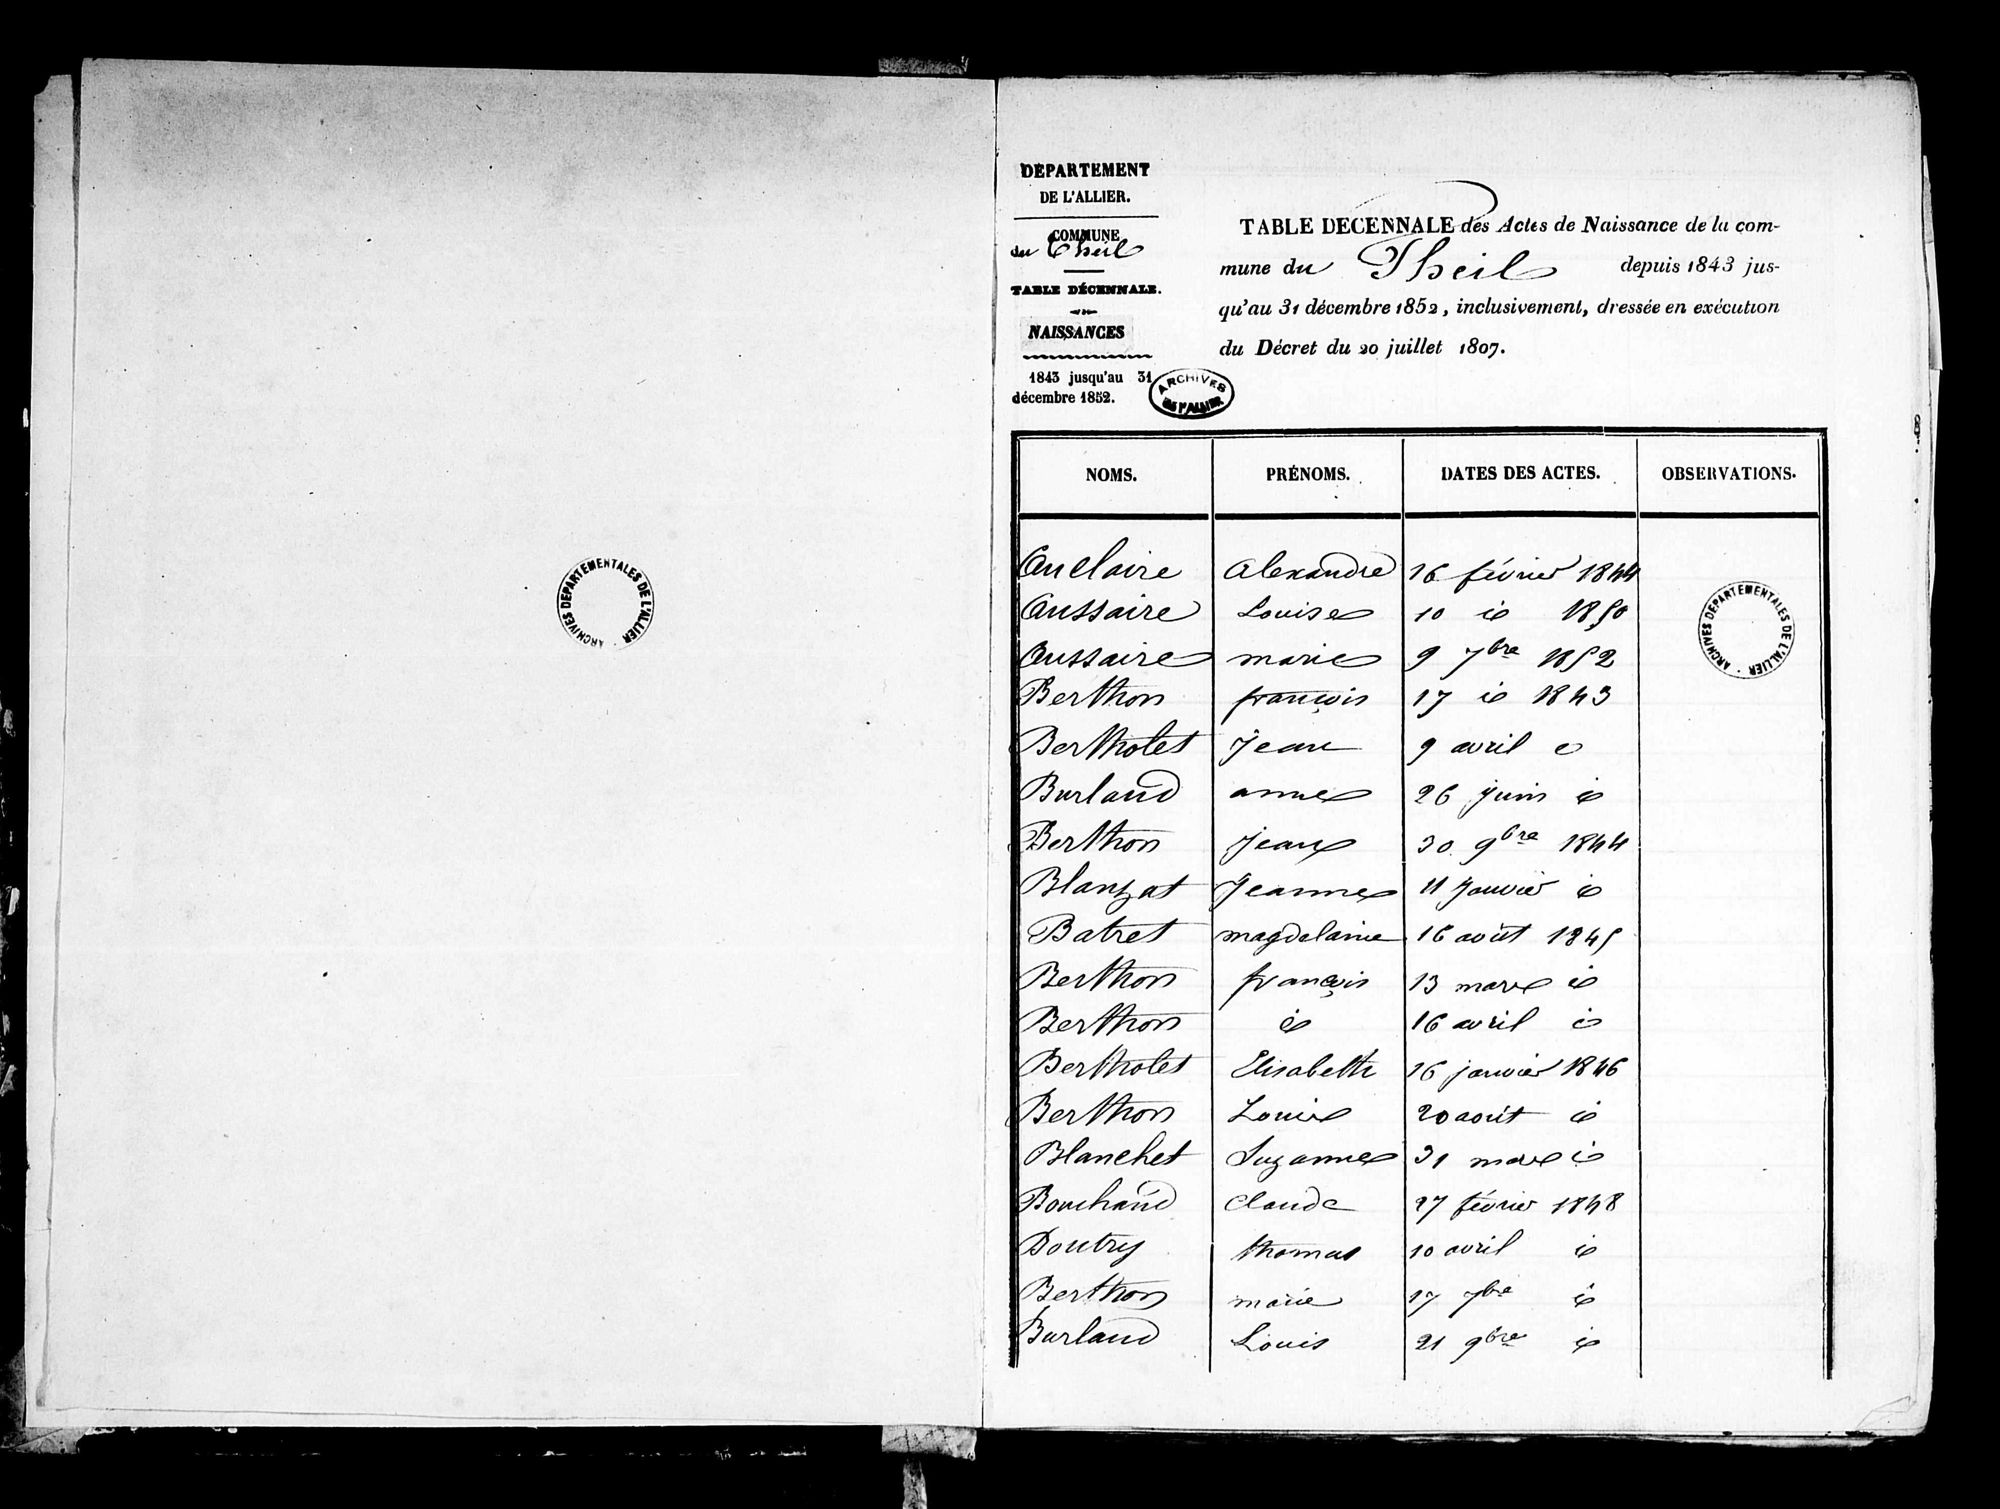 ARCHIVES DEPARTEMENTALES DE L'ALLIER
DEPARTEMENT
DE L'ALLIER.
COMMUNE
du Theil
TABLE DÉCENNALE.
NAISSANCES
1843 jusqu'au 31
décembre 1852.
ARCHIVES DE L'ALLIER
TABLE DECENNALE des Actes de Naissance de la com-
mune du Theil depuis 1843 jus-
qu'au 31 décembre 1852, inclusivement, dressée en exécution
du Décret du 20 juillet 1807.
NOMS. PRÉNOMS. DATES DES ACTES. OBSERVATIONS.
Auclaire Alexandre 16 février 1844
Aussaire Louise 10 id 1850
Aussaire marie 9 7bre 1852
Berthon françois 17 id 1843
Bertholet Jean 9 avril
Burland anne 26 juin id
Berthon Jean 30 9bre 1844
Blanzat Jeanne 11 Janvier id
Batret magdelaine 16 août 1845
Berthon françois 13 mars id
Berthon id 16 avril id
Bertholet Elisabeth 16 janvier 1846
Berthon Louis 20 août id
Blanchet Suzanne 31 mars id
Bouchand Claude 27 février 1848
Boutry thomas 10 avril id
Berthon marie 17 7bre id
Burland Louis 21 9bre id
ARCHIVES DEPARTEMENTALES DE L'ALLIER